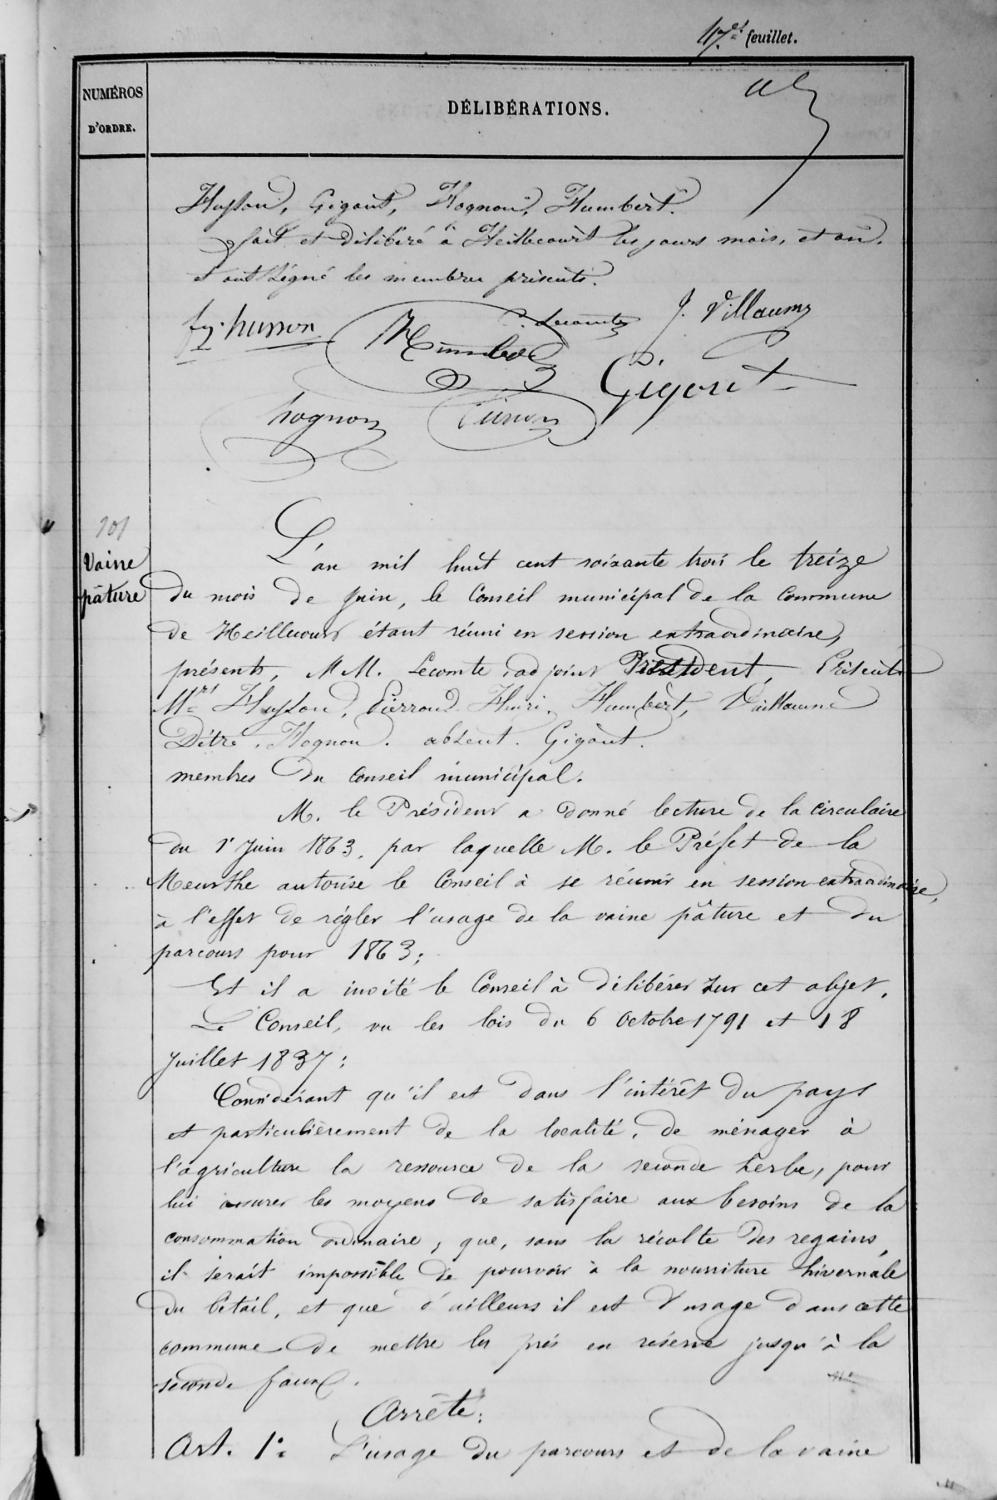 47.et feuillet.
NUMÉROS
D'ORDRE.
DÉLIBÉRATIONS.
Husson, Gigout, Hognon, Humbert.
fait et délibéré à Heillecourt les jours mois, et an.
et ont signé les membres présents.
fz. husson
Humbert
C. Lecomte
J. Villaume
Gigout
hognon
101
Vaine
pâture
L'an mil huit cent soixante trois le treize
du mois de Juin, le Conseil municipal de la Commune
de Heillecourt étant réuni en session extraordinaire,
présents, M M. Lecomte, adjoint Président, Présents
Mrs Husson, Pierron, Henri, Humbert, Vuillaume
Dêtre, Hognon. absent. Gigout.
membres du Conseil municipal.
M. le Président a donné lecture de la circulaire
du 1er Juin 1863, par laquelle M. le Préfet de la
Meurthe autorise le Conseil à se réunir en session extraordinaire,
à l'effet de régler l'usage de la vaine pâture et du
parcours pour 1863;
Et il a invité le Conseil à délibérer sur cet objet.
Le Conseil, vu les lois du 6 Octobre 1791 et 18
Juillet 1837;
Considérant qu'il est dans l'intérêt du pays
et particulièrement de la localité, de ménager à
l'agriculture la ressource de la seconde herbe, pour
lui assurer les moyens de satisfaire aux besoins de la
consommation ordinaire, que, sans la récolte des regains,
il serait impossible de pourvoir à la nourriture hivernale
du bétail, et que d'ailleurs il est d'usage dans cette
commune de mettre les prés en réserve jusqu'à la
seconde faux.
Arrête:
Art. 1er L'usage du parcours et de la vaine